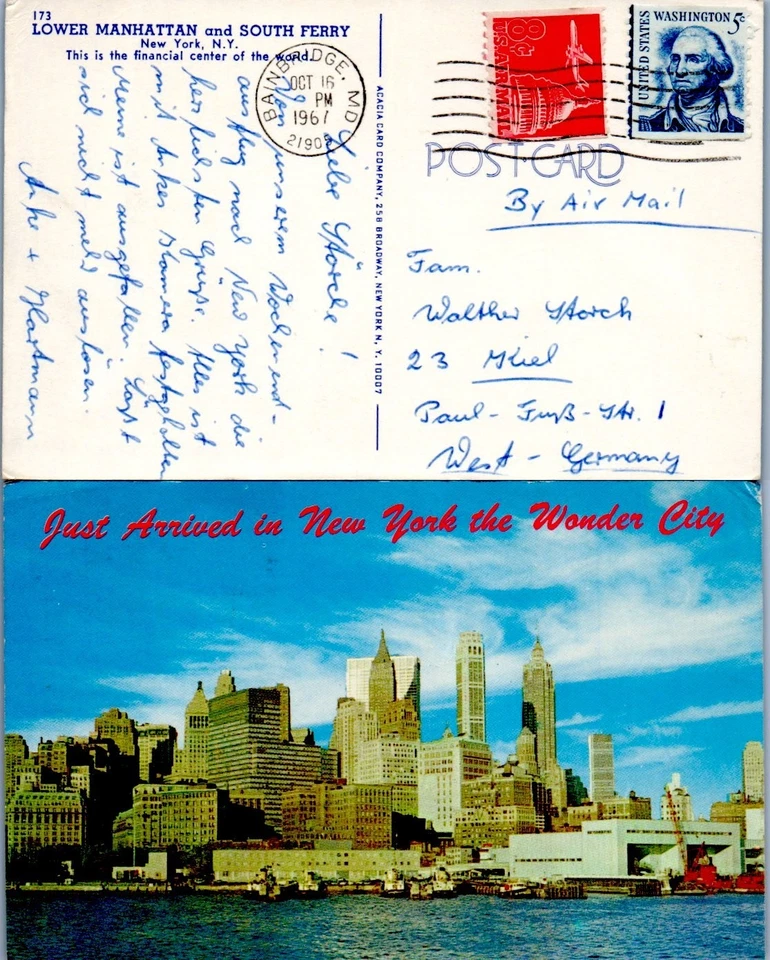 173
LOWER MANHATTAN and SOUTH FERRY
New York, N.Y.
This is the financial center of the world.
BAINBRIDGE, MD
OCT 16
PM
1967
21905
8¢
US AIR MAIL
UNITED STATES
WASHINGTON 5c
POST CARD
ACACIA CARD COMPANY, 258 BROADWAY, NEW YORK N. Y. 10007
By Air Mail
Fam.
Walther Storch
23 Kiel
Paul-Fuß-Str. 1
West-Germany
Liebe Störche!
Von unserem Wochenend-
ausflug nach New York die
herzlichsten Grüße. Alles ist
mit Ankes Kamera festgehalten
Meine ist ausgefallen. Läßt
sich nicht mehr auslösen.
Anke + Hartmann
Just Arrived in New York the Wonder City